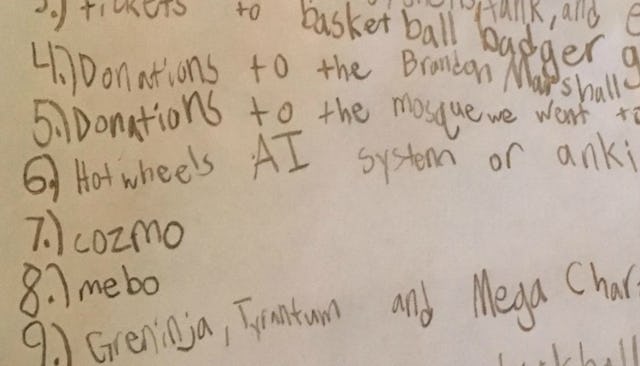 3.) tickets to basketball tank, and
badger
4.) Donations to the Brandon Marshall
5.) Donations to the mosque we went to
6.) Hot wheels AI system or anki
7.) cozmo
8.) mebo
9.) Greninja, Tyrantum and Mega Char